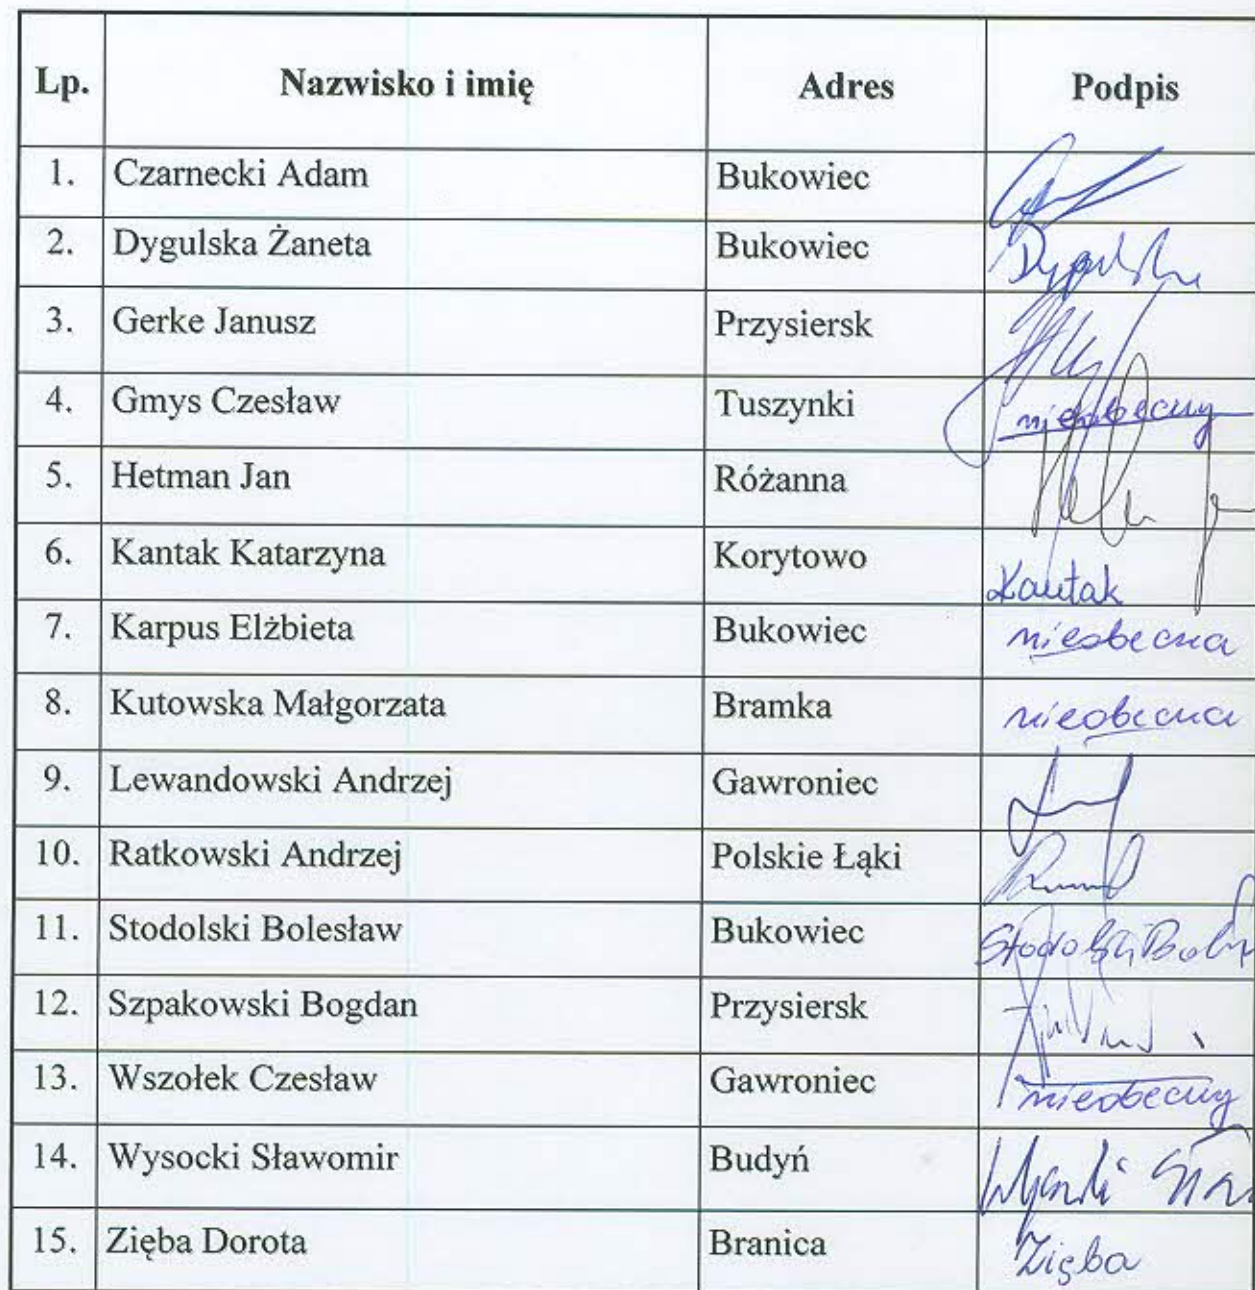 Lp. Nazwisko i imię Adres Podpis
1. Czarnecki Adam Bukowiec
2. Dygulska Żaneta Bukowiec Dygulska
3. Gerke Janusz Przysiersk
4. Gmys Czesław Tuszynki nieobecny
5. Hetman Jan Różanna
6. Kantak Katarzyna Korytowo Kantak
7. Karpus Elżbieta Bukowiec nieobecna
8. Kutowska Małgorzata Bramka nieobecna
9. Lewandowski Andrzej Gawroniec
10. Ratkowski Andrzej Polskie Łąki
11. Stodolski Bolesław Bukowiec Stodolski
12. Szpakowski Bogdan Przysiersk
13. Wszołek Czesław Gawroniec nieobecny
14. Wysocki Sławomir Budyń
15. Zięba Dorota Branica Zięba